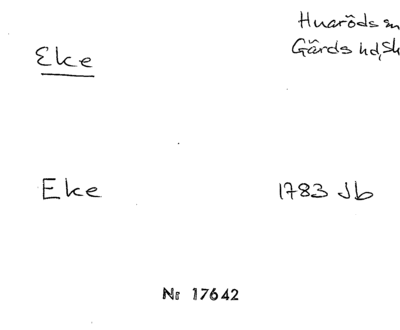 Huaröds sn
Eke
Gärds hd, Sk
Eke 1783 Jb
Nr 17642